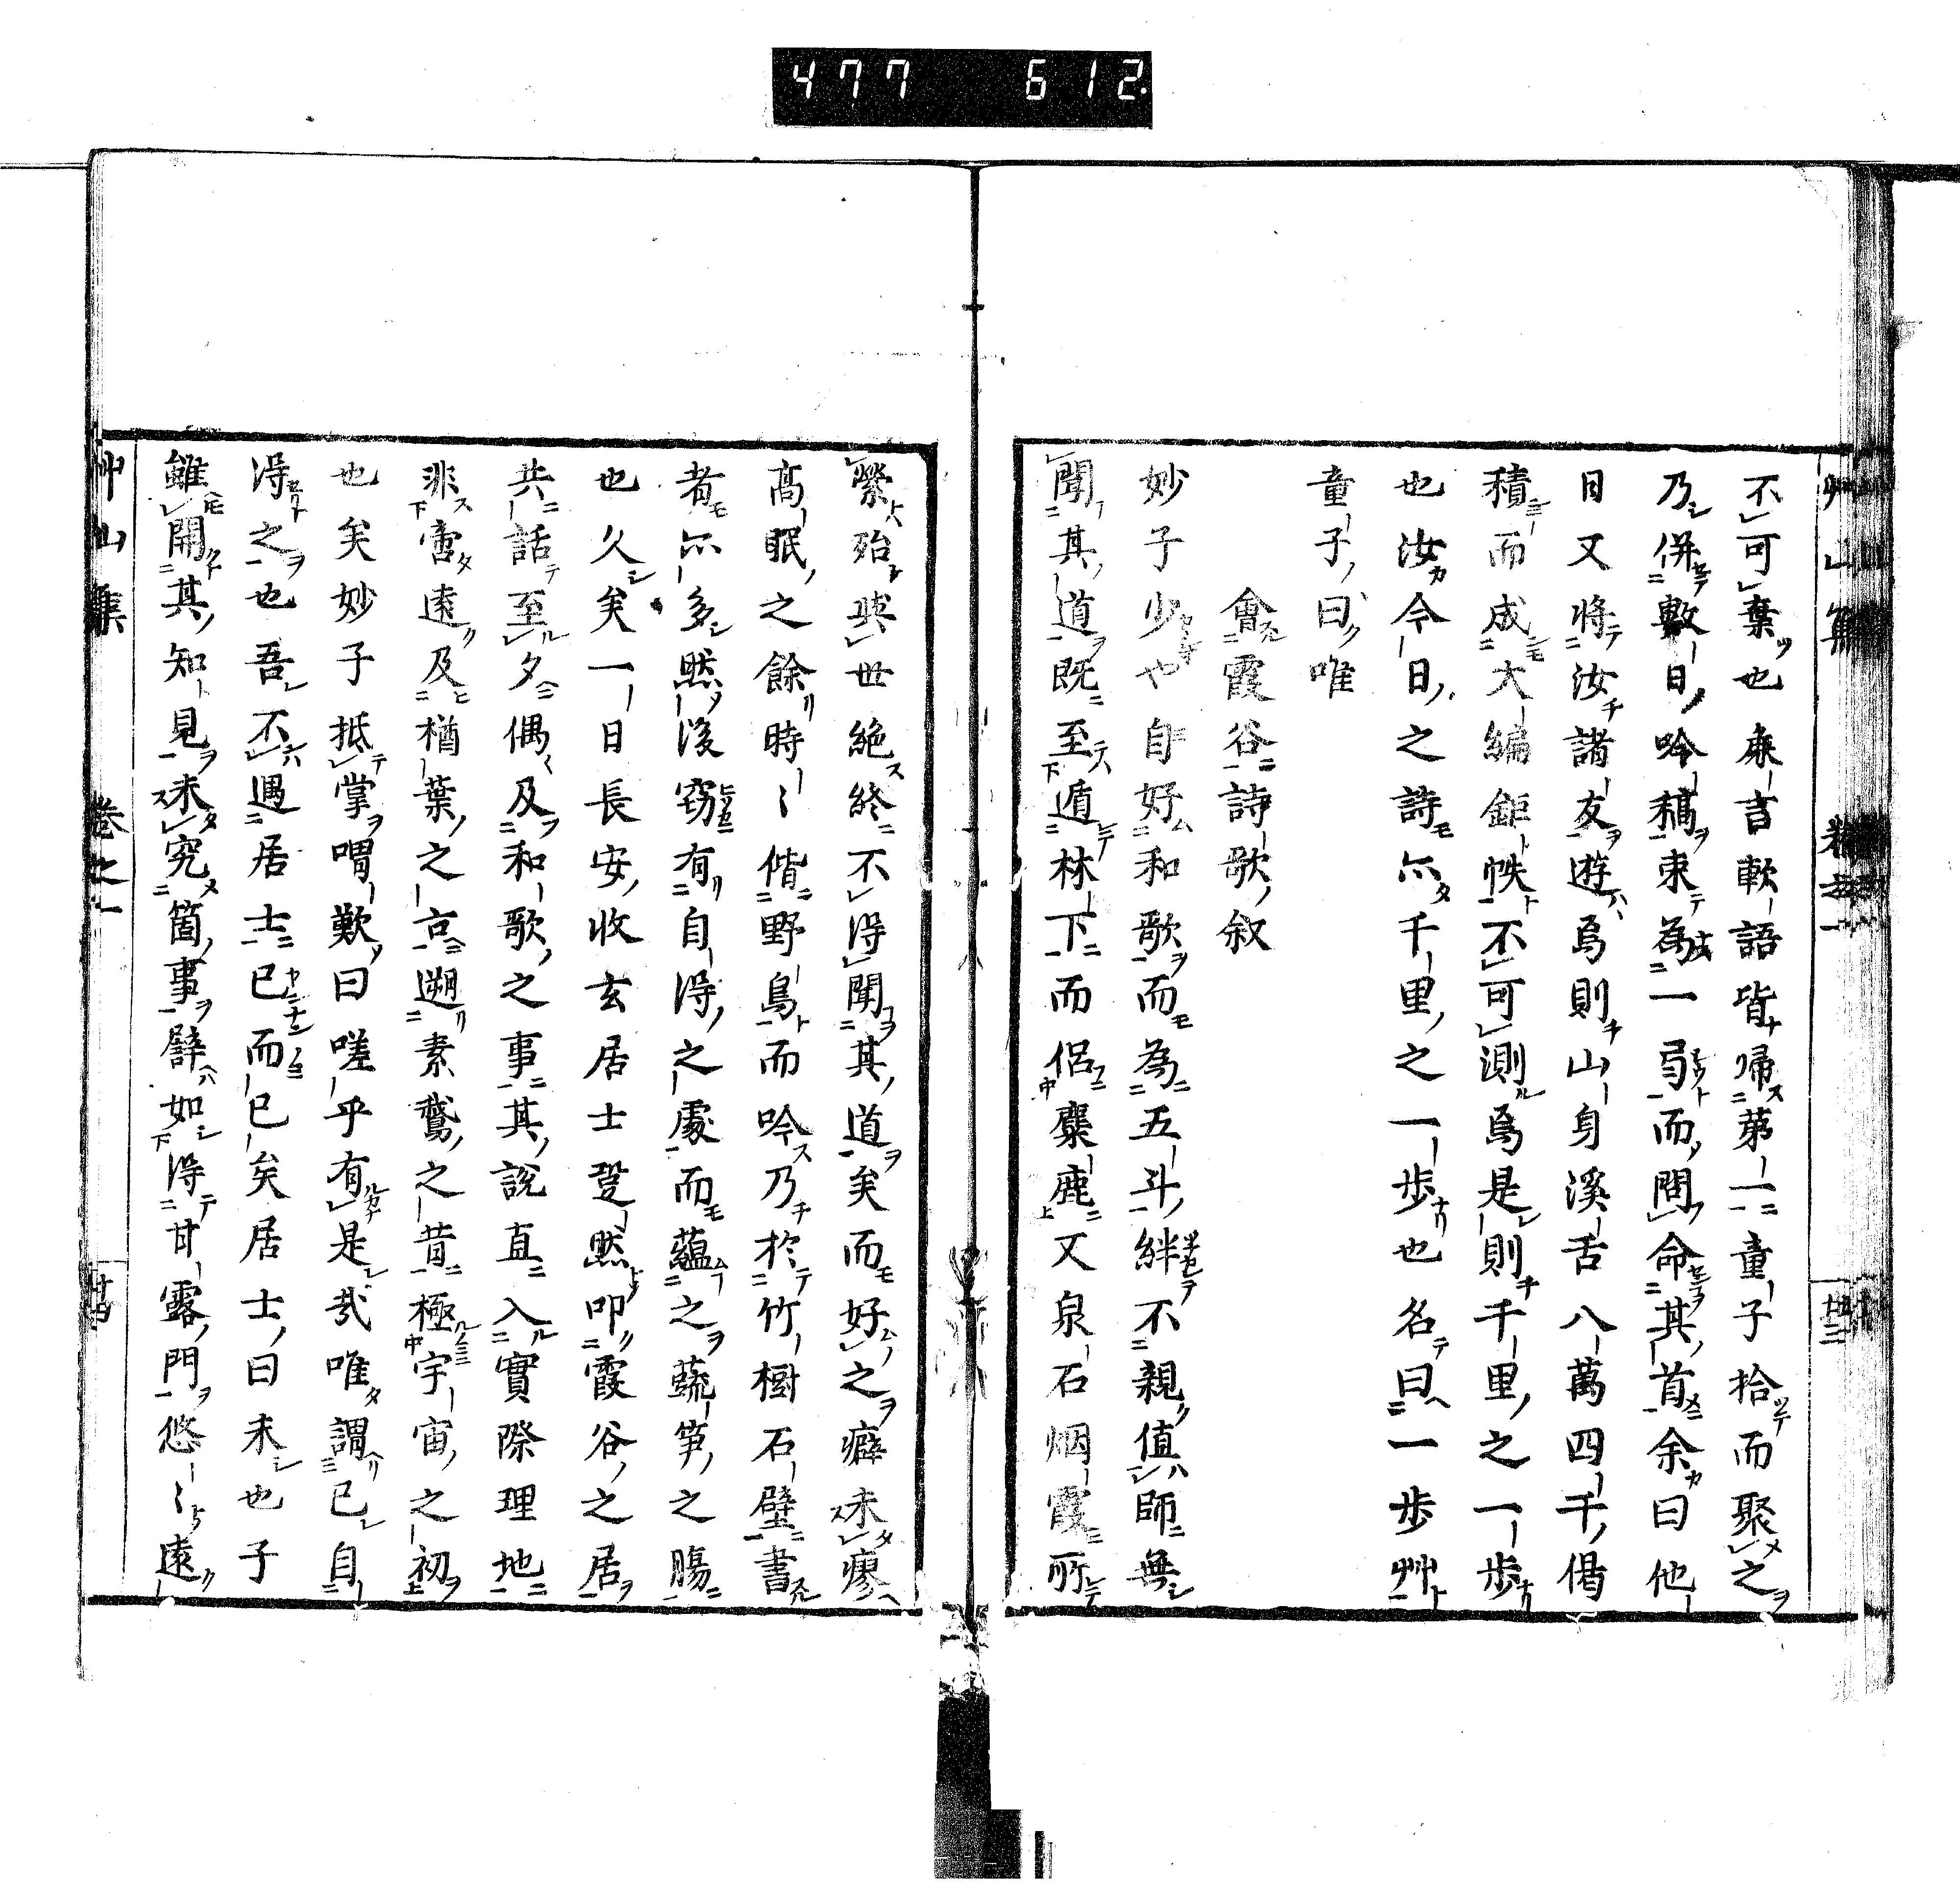 477 612
不可棄也麁言軟語皆帰第一童子拾而聚之
乃併數日吟稿束為一局而問命其首余曰他
日又将汝諸友遊焉則山身溪舌八萬四千偈
積而成大編鉅帙不可測焉是則千里之一歩
也汝今日之詩亦千里之一歩也名曰一歩艸
童子曰唯
會霞谷詩歌叙
妙子少也自好和歌而為五斗絆不親値師無
聞其道既至遁林下而侶麋鹿又泉石烟霞所
縈殆與世絶終不得聞其道矣而好之癖未瘳
高眠之餘時〻偕野鳥而吟乃於竹樹石壁書
者亦多然後窃有自得之處而蘊之蔬笋之腸
也久矣一日長安收玄居士跫然叩霞谷之居
共話至夕偶及和歌之事其說直入實際理地
非啻遠及楢葉之古遡素鵞之昔極宇宙之初
也矣妙子抵掌喟歎曰嗟乎有是哉唯謂已自
得之也吾不遇居士已而已矣居士曰未也子
雖開其知見未究箇事譬如得甘露門悠〻遠
艸山集 卷之一 廿四